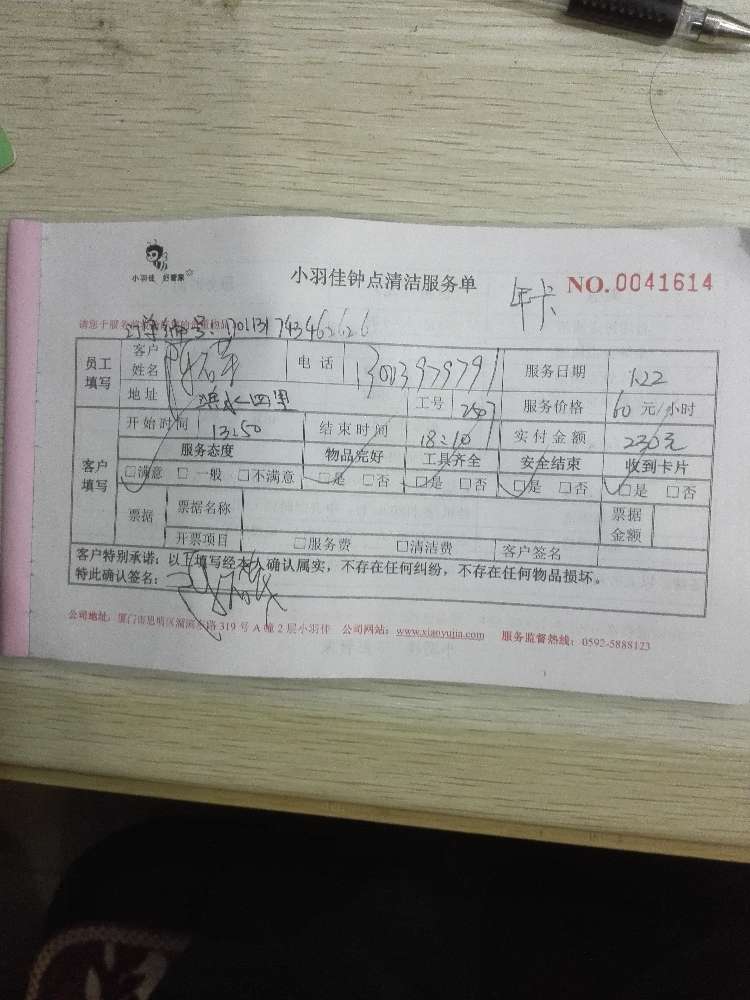 小羽佳 好管家
小羽佳钟点清洁服务单
年卡
NO.0041614
请您于服务
订单编号:
员工填写 客户姓名 电话 服务日期 1.22
地址 工号 2507 服务价格 60 元/小时
客户填写 开始时间 13:50 结束时间 18:10 实付金额 230元
服务态度 物品完好 工具齐全 安全结束 收到卡片
□满意 □一般 □不满意 □是 □否 □是 □否 □是 □否 □是 □否
票据 票据名称 票据金额
开票项目 □服务费 □清洁费 客户签名
客户特别承诺:以上填写经本人确认属实,不存在任何纠纷,不存在任何物品损坏。
特此确认签名:
公司地址:厦门市思明区 路319号A幢2层小羽佳 公司网站:www.xiaoyujia.com 服务监督热线:0592-5888123